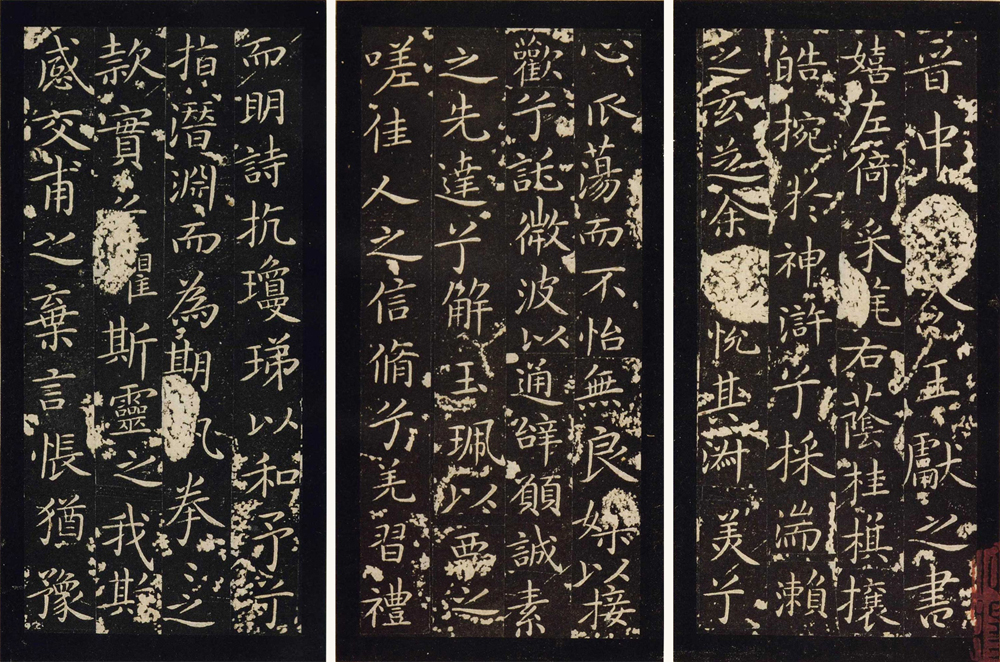 晉中王獻之書
嬉左倚采旄右蔭桂旗攘
皓捥於神滸兮採湍瀨
之玄芝余悅其淑美兮
心蕩而不怡無良媒以接
歡兮託微波以通辭願誠素
之先達兮解玉珮以要之
嗟佳人之信脩兮羌習禮
而明詩抗瓊珶以和予兮
指潛淵而為期拳之
款實斯靈之我欺
感交甫之棄言悵猶豫